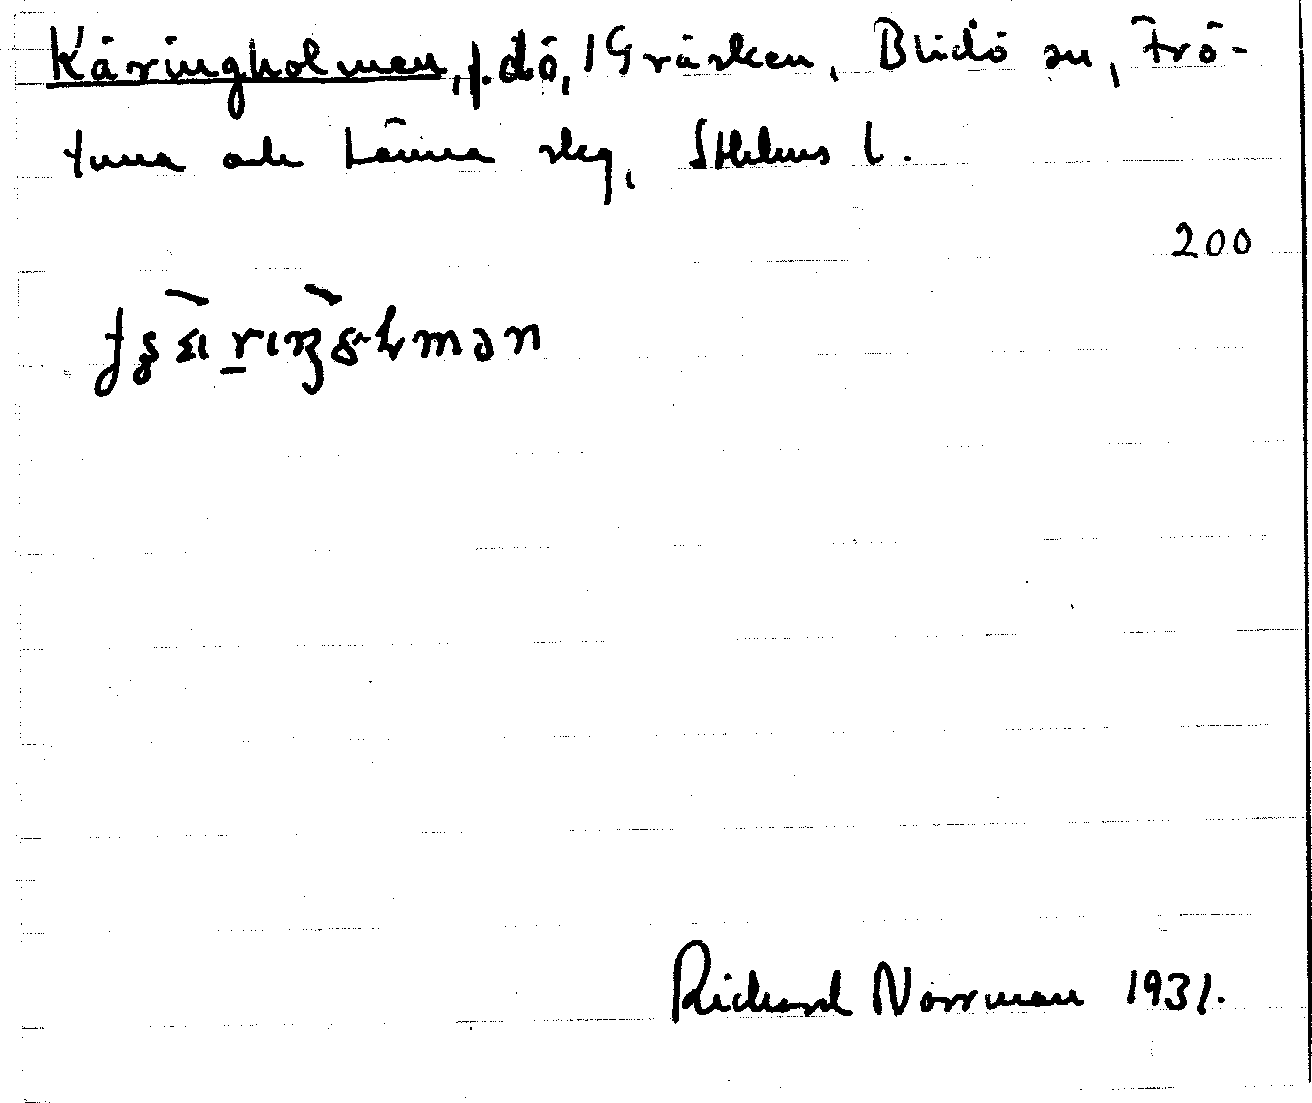 Käringholmen, f.d ö, i Gräsken, Blidö sn, Frö-
tuna och Länna skg, Sthlms l.
200
Richard Norrman 1931.